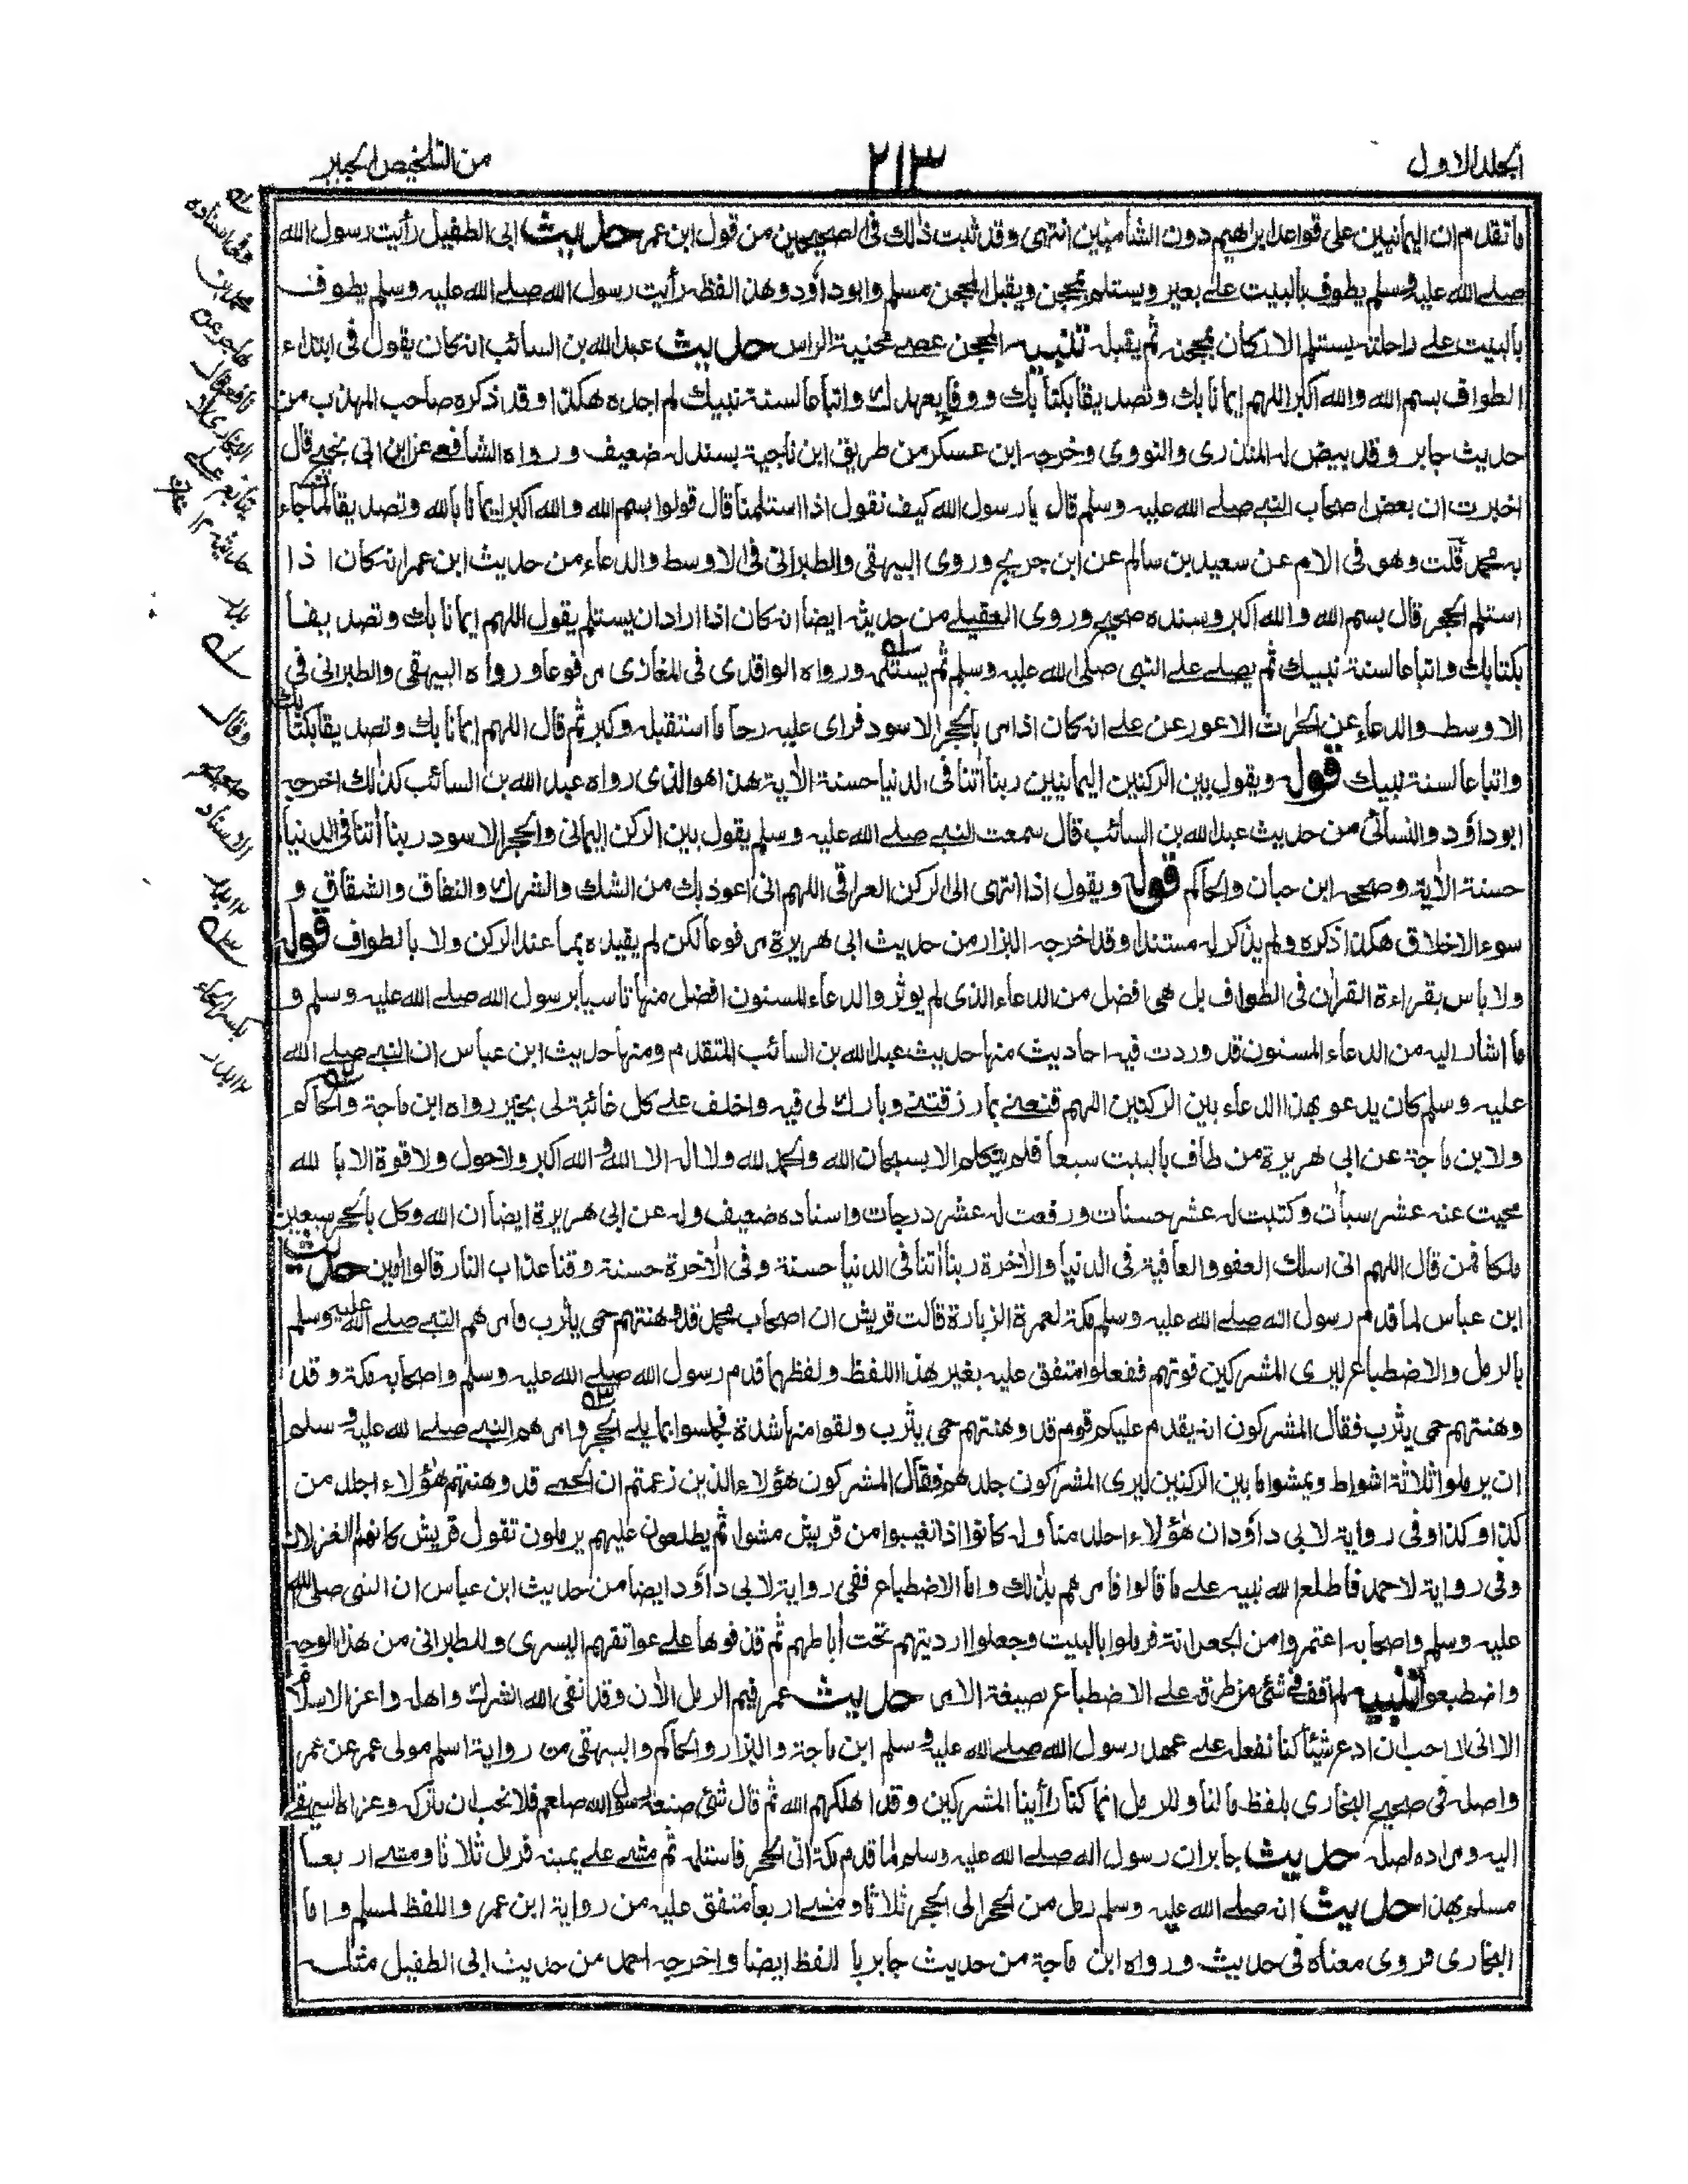 الجلد الاول
٢١٣
من التلخيص الحبير
ما تقدم ان اليمانيين على قواعد ابراهيم دون الشاميين انتهى وقد ثبت ذلك فى الصحيحين من قول ابن عمر حديث ابى الطفيل رأيت رسول الله
صلى الله عليه وسلم يطوف بالبيت على بعير ويستلم بمحجن ويقبل المحجن مسلم وابو داؤد وهذا لفظه رأيت رسول الله صلى الله عليه وسلم يطوف
بالبيت على راحلته يستلم الاركان بمحجنه ثم يقبله تنبيه المحجن عصى محنية الراس حديث عبد الله بن السائب انه كان يقول فى ابتداء
الطواف بسم الله والله اكبر اللهم ايمانا بك وتصديقا بكتابك ووفاء بعهدك واتباعا لسنة نبيك لم اجده هكذا وقد ذكره صاحب المهذب من
حديث جابر وقد بيض له المنذرى والنووى وخرجه ابن عسكر من طريق ابن ناجية بسند له ضعيف ورواه الشافعى عن ابن ابى نجيح قال
اخبرت ان بعض اصحاب النبى صلى الله عليه وسلم قال يا رسول الله كيف نقول اذا استلمنا قال قولوا بسم الله والله اكبر ايمانا بالله وتصديقا لما جاء
به محمد قلت وهو فى الام عن سعيد بن سالم عن ابن جريج وروى البيهقى والطبرانى فى الاوسط والدعاء من حديث ابن عمر انه كان اذا
استلم الحجر قال بسم الله والله اكبر وسنده صحيح وروى العقيلى من حديثه ايضا انه كان اذا اراد ان يستلم يقول اللهم ايمانا بك وتصديقا
بكتابك واتباعا لسنة نبيك ثم يصلى على النبى صلى الله عليه وسلم ثم يستلمه ورواه الواقدى فى المغازى مرفوعا ورواه البيهقى والطبرانى فى
الاوسط والدعاء عن الحرث الاعور عن على انه كان اذا مر بالحجر الاسود فراى عليه زحاما استقبله وكبر ثم قال اللهم ايمانا بك وتصديقا بكتابك
واتباعا لسنة نبيك قوله ويقول بين الركنين اليمانيين ربنا اتنا فى الدنيا حسنة الاية هذا هو الذى رواه عبد الله بن السائب كذلك اخرجه
ابو داؤد والنسائى من حديث عبد الله بن السائب قال سمعت النبى صلى الله عليه وسلم يقول بين الركن اليمانى والحجر الاسود ربنا اتنا فى الدنيا
حسنة الاية وصححه ابن حبان والحاكم قوله ويقول اذا انتهى الى الركن العراقى اللهم انى اعوذ بك من الشك والشرك والنفاق والشقاق و
سوء الاخلاق هكذا ذكره ولم يذكر له مستندا وقد اخرجه البزار من حديث ابى هريرة مرفوعا لكن لم يقيده بما عند الركن ولا بالطواف قوله
ولا باس بقراءة القران فى الطواف بل هى افضل من الدعاء الذى لم يوثر والدعاء المسنون افضل منها تاسيا برسول الله صلى الله عليه وسلم و
ما اشار اليه من الدعاء المسنون قد وردت فيه احاديث منها حديث عبد الله بن السائب المتقدم ومنها حديث ابن عباس ان النبى صلى الله
عليه وسلم كان يدعو بهذا الدعاء بين الركنين اللهم قنعنى بما رزقتنى وبارك لى فيه واخلف على كل غائبة لى بخير رواه ابن ماجة والحاكم
ولابن ماجة عن ابى هريرة من طاف بالبيت سبعا فلم يتكلم الا بسبحان الله والحمد لله ولا اله الا الله والله اكبر ولا حول ولا قوة الا بالله
محيت عنه عشر سيأت وكتبت له عشر حسنات ورفعت له عشر درجات واسناده ضعيف وله عن ابى هريرة ايضا ان الله وكل بالحجر سبعين
ملكا فمن قال اللهم انى اسلك العفو والعافية فى الدنيا والاخرة ربنا اتنا فى الدنيا حسنة وفى الاخرة حسنة وقنا عذاب النار قالوا امين حديث
ابن عباس لما قدم رسول الله صلى الله عليه وسلم مكة لعمرة الزيارة قالت قريش ان اصحاب محمد قد وهنتهم حمى يثرب فامرهم النبى صلى الله عليه وسلم
بالرمل والاضطباع ليرى المشركين قوتهم ففعلوا متفق عليه بغير هذا اللفظ ولفظهما قدم رسول الله صلى الله عليه وسلم واصحابه مكة وقد
وهنتهم حمى يثرب فقال المشركون انه يقدم عليكم قوم قد وهنتهم حمى يثرب ولقوا منها شدة فجلسوا مما يلى الحجر وامرهم النبى صلى الله عليه وسلم
ان يرملوا ثلاثة اشواط ويمشوا ما بين الركنين ليرى المشركون جلدهم فقال المشركون هؤلاء الذين زعمتم ان الحمى قد وهنتهم هؤلاء اجلد من
كذا وكذا وفى رواية لابى داؤد ان هؤلاء اجلد منا وله كانوا اذا تغيبوا من قريش مشوا ثم يطلعون عليهم يرملون تقول قريش كانهم الغزلان
وفى رواية لاحمد فاطلع الله نبيه على ما قالوا فامرهم بذلك واما الاضطباع ففى رواية لابى داؤد ايضا من حديث ابن عباس ان النبى صلى الله
عليه وسلم واصحابه اعتمروا من الجعرانة فرملوا بالبيت وجعلوا ارديتهم تحت اباطهم ثم قذفوها على عواتقهم اليسرى وللطبرانى من هذا الوجه
واضطبعوا تنبيه لم اقف فى شئ من طرقه على الاضطباع بصيغة الامر حديث عمر فيم الرمل الان وقد نفى الله الشرك واهله واعز الاسلام
الا انى لا احب ان ادع شيئا كنا نفعله على عهد رسول الله صلى الله عليه وسلم ابن ماجة والبزار والحاكم والبيهقى من رواية اسلم مولى عمر عن عمر
واصله فى صحيح البخارى بلفظ ما لنا وللرمل انما كنا رأينا المشركين وقد اهلكهم الله ثم قال شئ صنعه رسول الله صلعم فلا نحب ان نتركه وعزاه البيهقى
اليه ومراده اصله حديث جابر ان رسول الله صلى الله عليه وسلم لما قدم مكة اتى الحجر فاستلمه ثم مشى على يمينه فرمل ثلاثا ومشى اربعا
مسلم بهذا حديث انه صلى الله عليه وسلم رمل من الحجر الى الحجر ثلاثا ومشى اربعا متفق عليه من رواية ابن عمر واللفظ لمسلم واما
البخارى فروى معناه فى حديث ورواه ابن ماجة من حديث جابر باللفظ ايضا واخرجه احمد من حديث ابى الطفيل مثله
وفى اسناده
محمد بن
مهاجر عن
نافع قال
البخارى لا
يتابع على
حديثه ١٢
بدر
وقال
صحيح
الاسناد
١٢ بدر
بكسر الحاء
١٢ بدر